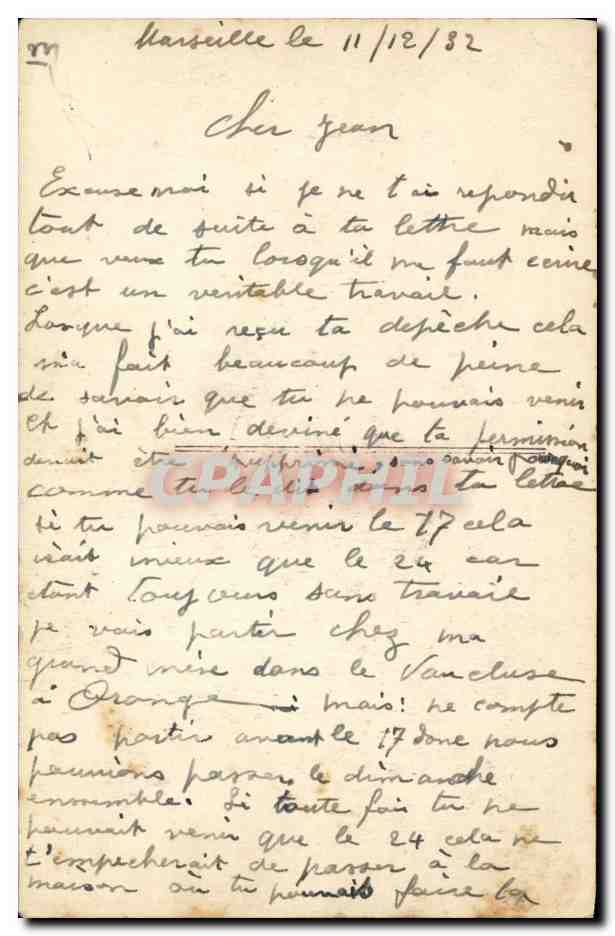 Marseille le 11/12/32
Cher Jean
Excuse moi si je ne t'ai repondu
tout de suite à ta lettre mais
que veux tu lorsqu'il me faut ecrire
c'est un veritable travail.
Lorsque j'ai reçu ta depèche cela
m'a fait beaucoup de peine
de savoir que tu ne pouvais venir
Et j'ai bien deviné que ta permission
devait être supprimé, sans savoir pourquoi
comme tu le dit dans ta lettre
si tu pouvais venir le 17 cela
irait mieux que le 24 car
etant toujours sans travail
je vais partir chez ma
grand mère dans le Vaucluse
à Orange mais! ne compte
pas partir avant le 17 donc nous
pouvions passer le dimanche
enssemble. Si toute fois tu ne
pouvait venir que le 24 cela ne
t'empecherait de passer à la
maison où tu pourrais faire la
CPAPHIL